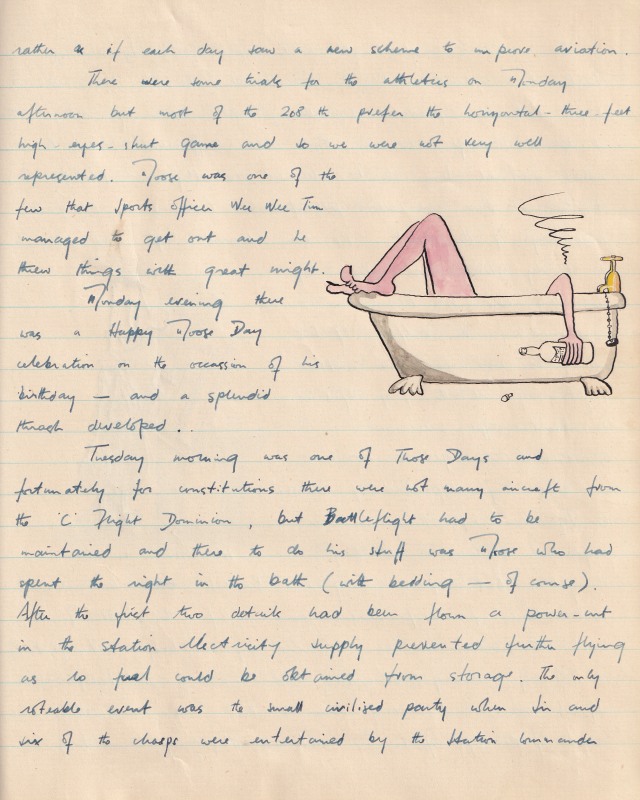 rather as if each day saw a new scheme to improve aviation.
There were some trials for the athletics on Monday
afternoon but most of the 208 th prefer the horizontal - three feet
high - eyes - shut game and so we were not very well
represented. Moose was one of the
few that sports officer Wee Wee Tim
managed to get out and he
threw things with great might.
Monday evening there
was a Happy Moose Day
celebration on the occassion of his
birthday — and a splendid
thrash developed ..
Tuesday morning was one of Those Days and
fortunately for constitutions there were not many aircraft from
the 'C' Flight Dominion, but Battleflight had to be
maintained and there to do his stuff was Moose who had
spent the night in the bath (with bedding — of course).
After the first two details had been flown a power-cut
in the station electricity supply prevented further flying
as no fuel could be obtained from storage. The only
noteable event was the small civilised party when Sir and
six of the chaps were entertained by the Station Commander